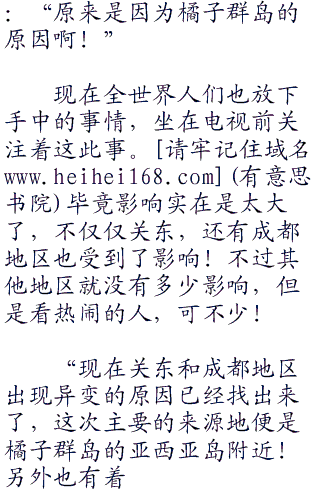 ：“原来是因为橘子群岛的
原因啊！”
现在全世界人们也放下
手中的事情，坐在电视前关
注着这此事。[请牢记住域名
www.heihei168.com](有意思
书院)毕竟影响实在是太大
了，不仅仅关东，还有成都
地区也受到了影响！不过其
他地区就没有多少影响，但
是看热闹的人，可不少！
“现在关东和成都地区
出现异变的原因已经找出来
了，这次主要的来源地便是
橘子群岛的亚西亚岛附近！
另外也有着